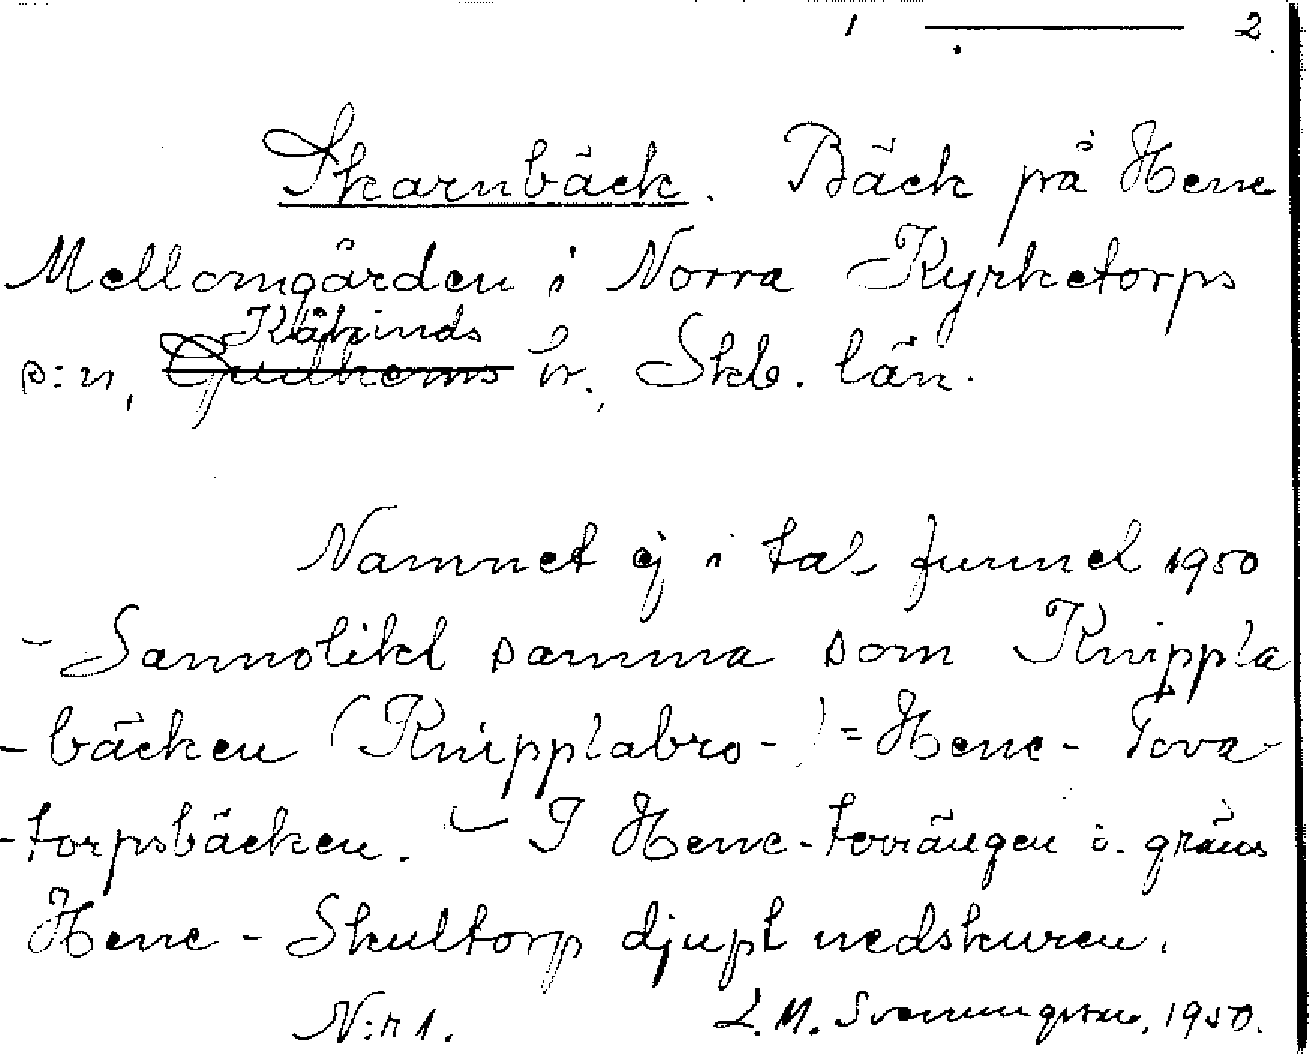 1 — 2
Skarnbäck. Bäck på Hene
Mellomgården i Norra Kyrketorps
Kåkinds
s:n, Gudhems hr., Skb. län.
Namnet ej i tal funnet 1950
- Sannolikt samma som Knippla
-bäcken (Knipplabro-) = Hene- Tova
-torpsbäcken. - I Hene-terrängen i gräns
Hene - Skultorp djupt nedskuren.
N:r 1. L. M. Svenungsson, 1950.